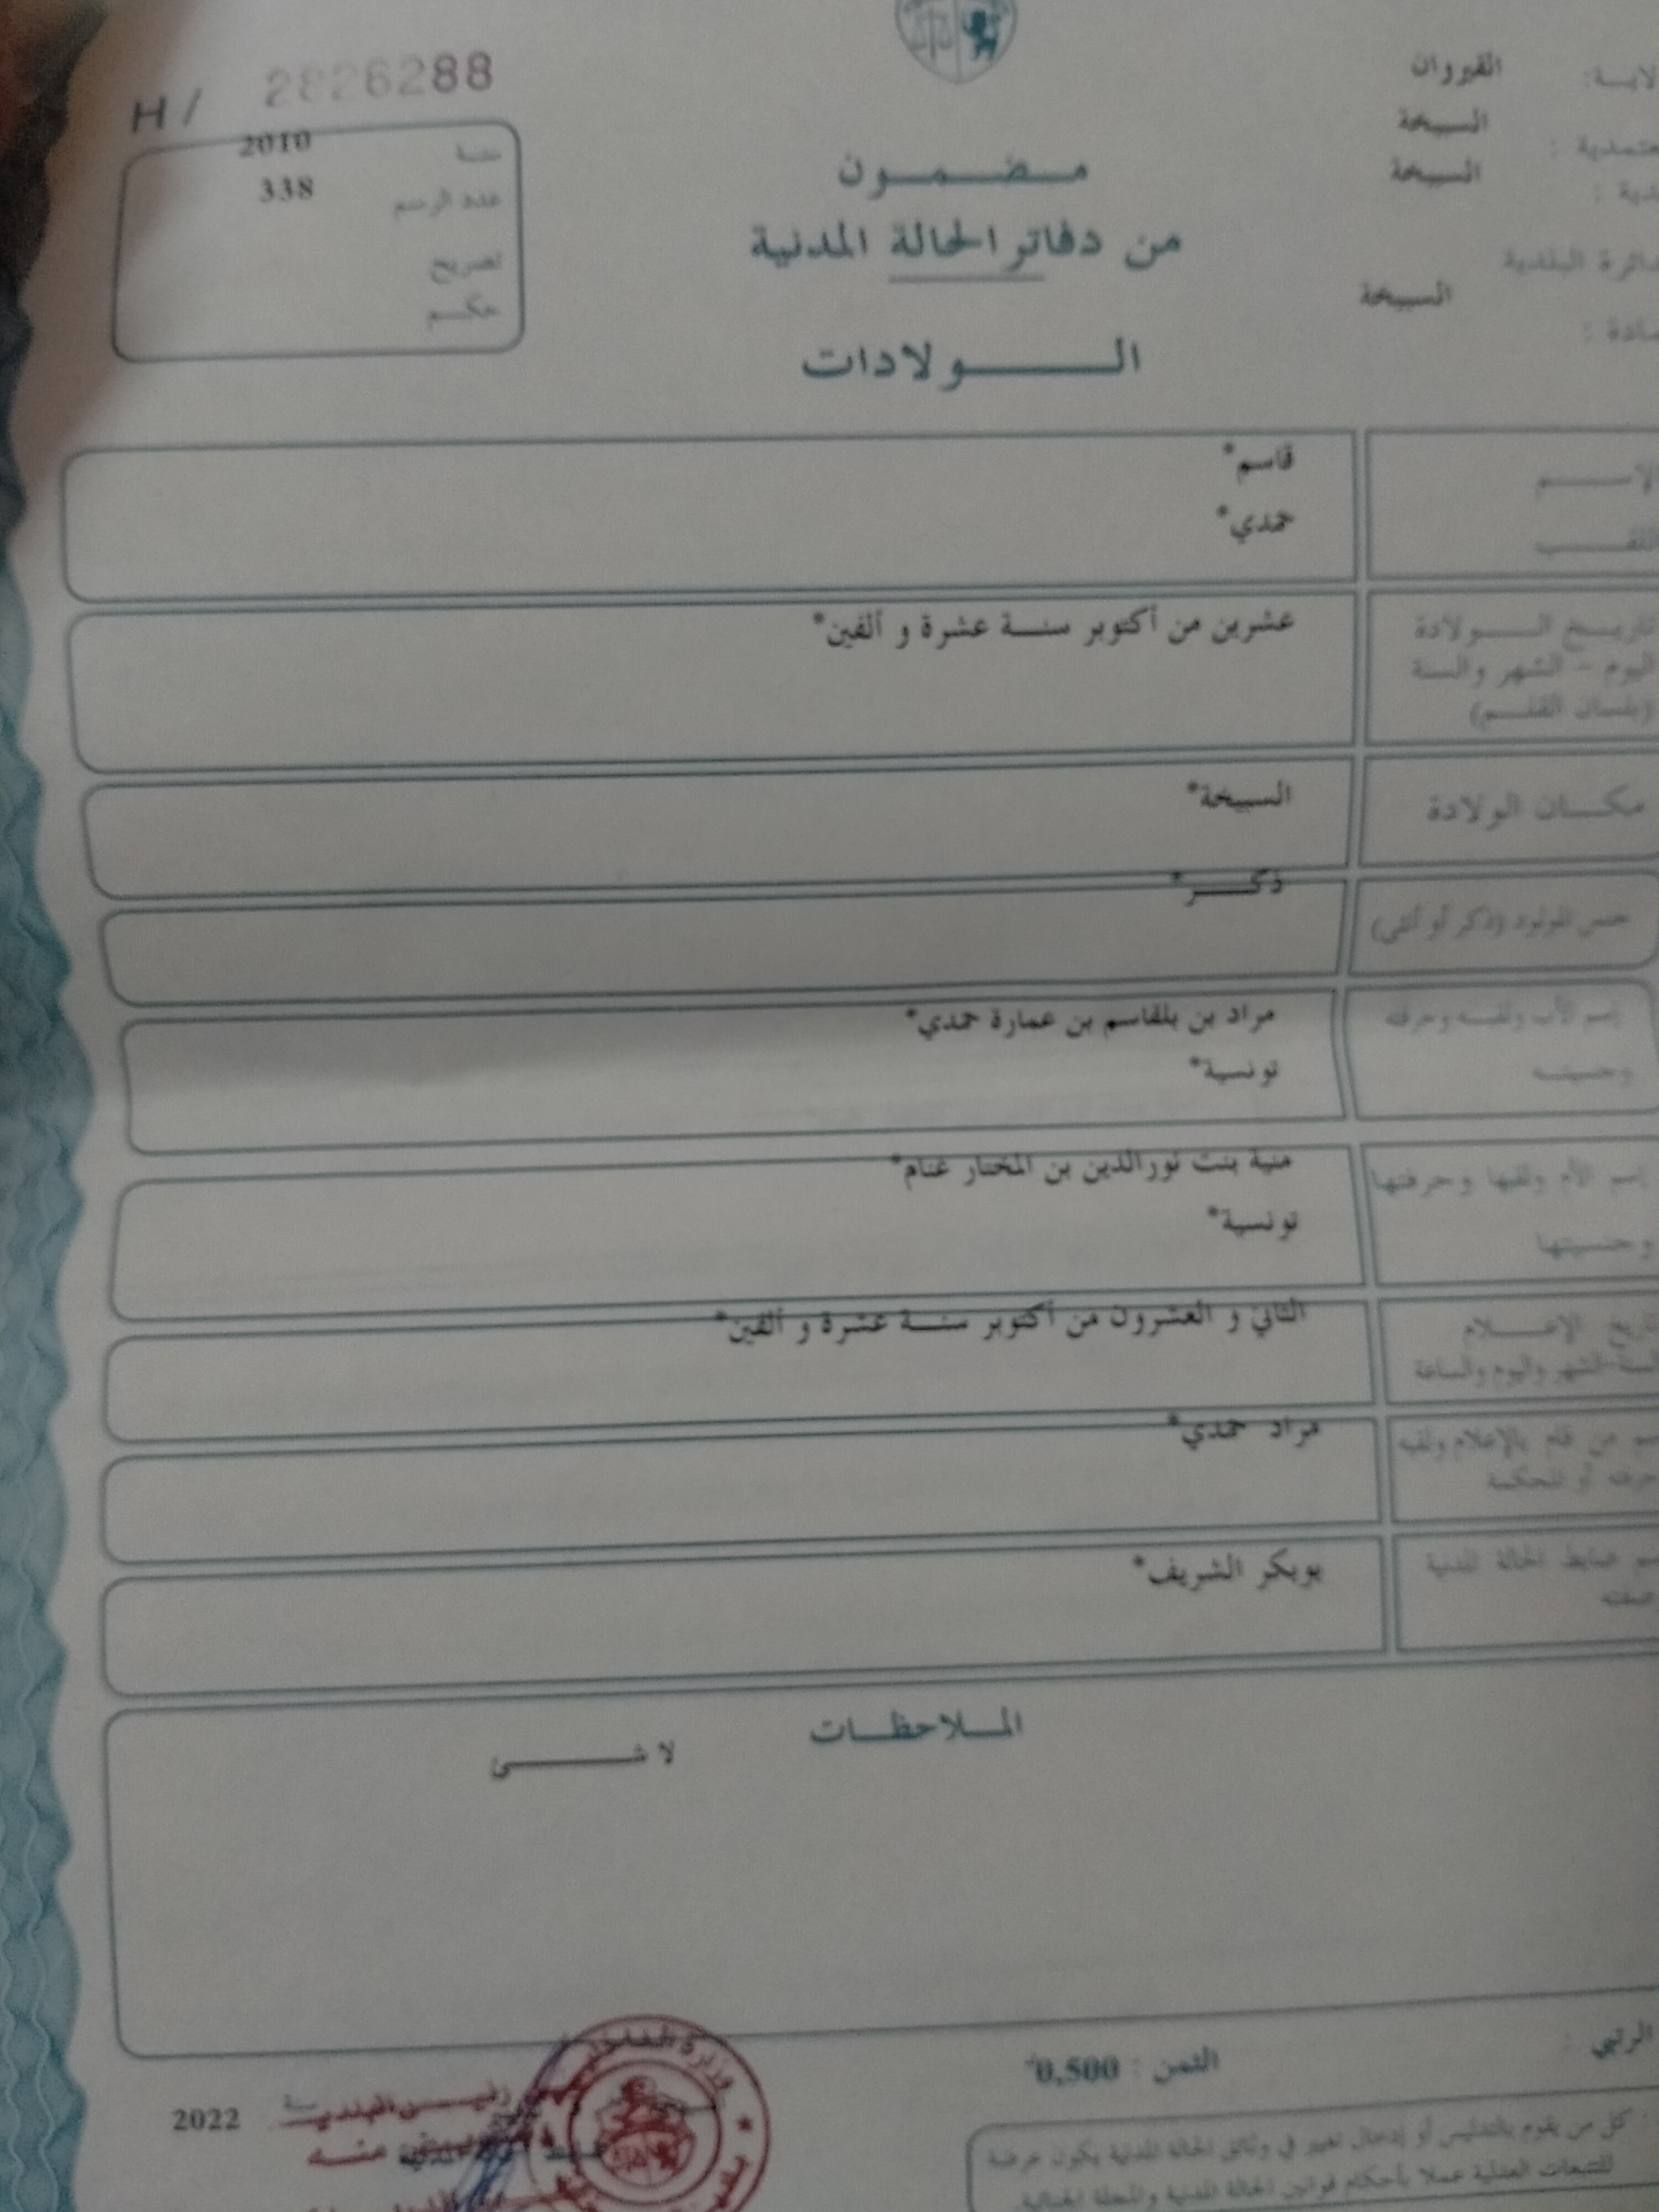 H/ 2826288
سنة 2010
عدد الرسم 338
تصريح
حكم
القيروان
السبيخة
السبيخة
السبيخة
مضمون
من دفاتر الحالة المدنية
الولادات
قاسم*
حمدي*
تاريخ الولادة
اليوم - الشهر والسنة
(بلسان القلم)
عشرين من أكتوبر سنة عشرة و ألفين*
مكان الولادة
السبيخة*
جنس المولود (ذكر أو أنثى)
ذكر*
إسم الأب ولقبه وحرفته
وجنسيته
مراد بن بلقاسم بن عمارة حمدي*
تونسية*
إسم الأم ولقبها وحرفتها
وجنسيتها
منية بنت نورالدين بن المختار غنام*
تونسية*
تاريخ الإعلام
السنة-الشهر واليوم والساعة
الثاني و العشرون من أكتوبر سنة عشرة و ألفين*
من قام بالإعلام ولقبه
حرفته أو المحكمة
مراد حمدي*
ضابط الحالة المدنية
بوبكر الشريف*
الملاحظات
لا شئ
الثمن : 0,500
2022
كل من يقوم بالتدليس أو إدخال تغيير في وثائق الحالة المدنية يكون عرضة
للتتبعات العدلية عملا بأحكام قوانين الحالة المدنية والمجلة الجنائية